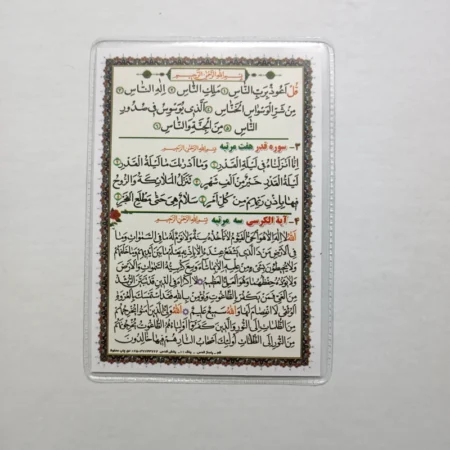 بسم الله الرحمن الرحیم
قُلْ اَعُوذُ بِرَبِّ النَّاسِ ۱ مَلِكِ النَّاسِ ۲ اِلٰهِ النَّاسِ ۳
مِنْ شَرِّ الْوَسْوَاسِ الْخَنَّاسِ ۴ اَلَّذِی یُوَسْوِسُ فِی صُدُورِ
النَّاسِ ۵ مِنَ الْجِنَّةِ وَالنَّاسِ ۶
۳- سوره قدر هفت مرتبه بسم الله الرحمن الرحیم
اِنَّا اَنْزَلْنَاهُ فِی لَیْلَةِ الْقَدْرِ ۱ وَمَا اَدْرٰیكَ مَا لَیْلَةُ الْقَدْرِ ۲
لَیْلَةُ الْقَدْرِ خَیْرٌ مِنْ اَلْفِ شَهْرٍ ۳ تَنَزَّلُ الْمَلَائِكَةُ وَالرُّوحُ
فِیهَا بِاِذْنِ رَبِّهِمْ مِنْ كُلِّ اَمْرٍ ۴ سَلَامٌ هِیَ حَتّٰی مَطْلَعِ الْفَجْرِ ۵
۴- آیة الکرسی سه مرتبه بسم الله الرحمن الرحیم
اَللّٰهُ لَا اِلٰهَ اِلَّا هُوَ الْحَیُّ الْقَیُّومُ لَا تَأْخُذُهُ سِنَةٌ وَلَا نَوْمٌ لَهُ مَا فِی السَّمٰوَاتِ وَمَا
فِی الْاَرْضِ مَنْ ذَا الَّذِی یَشْفَعُ عِنْدَهُ اِلَّا بِاِذْنِهِ یَعْلَمُ مَا بَیْنَ اَیْدِیهِمْ وَمَا خَلْفَهُمْ
وَلَا یُحِیطُونَ بِشَیْءٍ مِنْ عِلْمِهِ اِلَّا بِمَا شَاءَ وَسِعَ كُرْسِیُّهُ السَّمٰوَاتِ وَالْاَرْضَ
وَلَا یَؤُدُهُ حِفْظُهُمَا وَهُوَ الْعَلِیُّ الْعَظِیمُ لَا اِكْرَاهَ فِی الدِّینِ قَدْ تَبَیَّنَ الرُّشْدُ
مِنَ الْغَیِّ فَمَنْ یَكْفُرْ بِالطَّاغُوتِ وَیُؤْمِنْ بِاللّٰهِ فَقَدِ اسْتَمْسَكَ بِالْعُرْوَةِ
الْوُثْقٰی لَا انْفِصَامَ لَهَا وَاللّٰهُ سَمِیعٌ عَلِیمٌ اَللّٰهُ وَلِیُّ الَّذِینَ آمَنُوا یُخْرِجُهُمْ
مِنَ الظُّلُمَاتِ اِلَی النُّورِ وَالَّذِینَ كَفَرُوا اَوْلِیَاؤُهُمُ الطَّاغُوتُ یُخْرِجُونَهُمْ
مِنَ النُّورِ اِلَی الظُّلُمَاتِ اُولٰئِكَ اَصْحَابُ النَّارِ هُمْ فِیهَا خَالِدُونَ